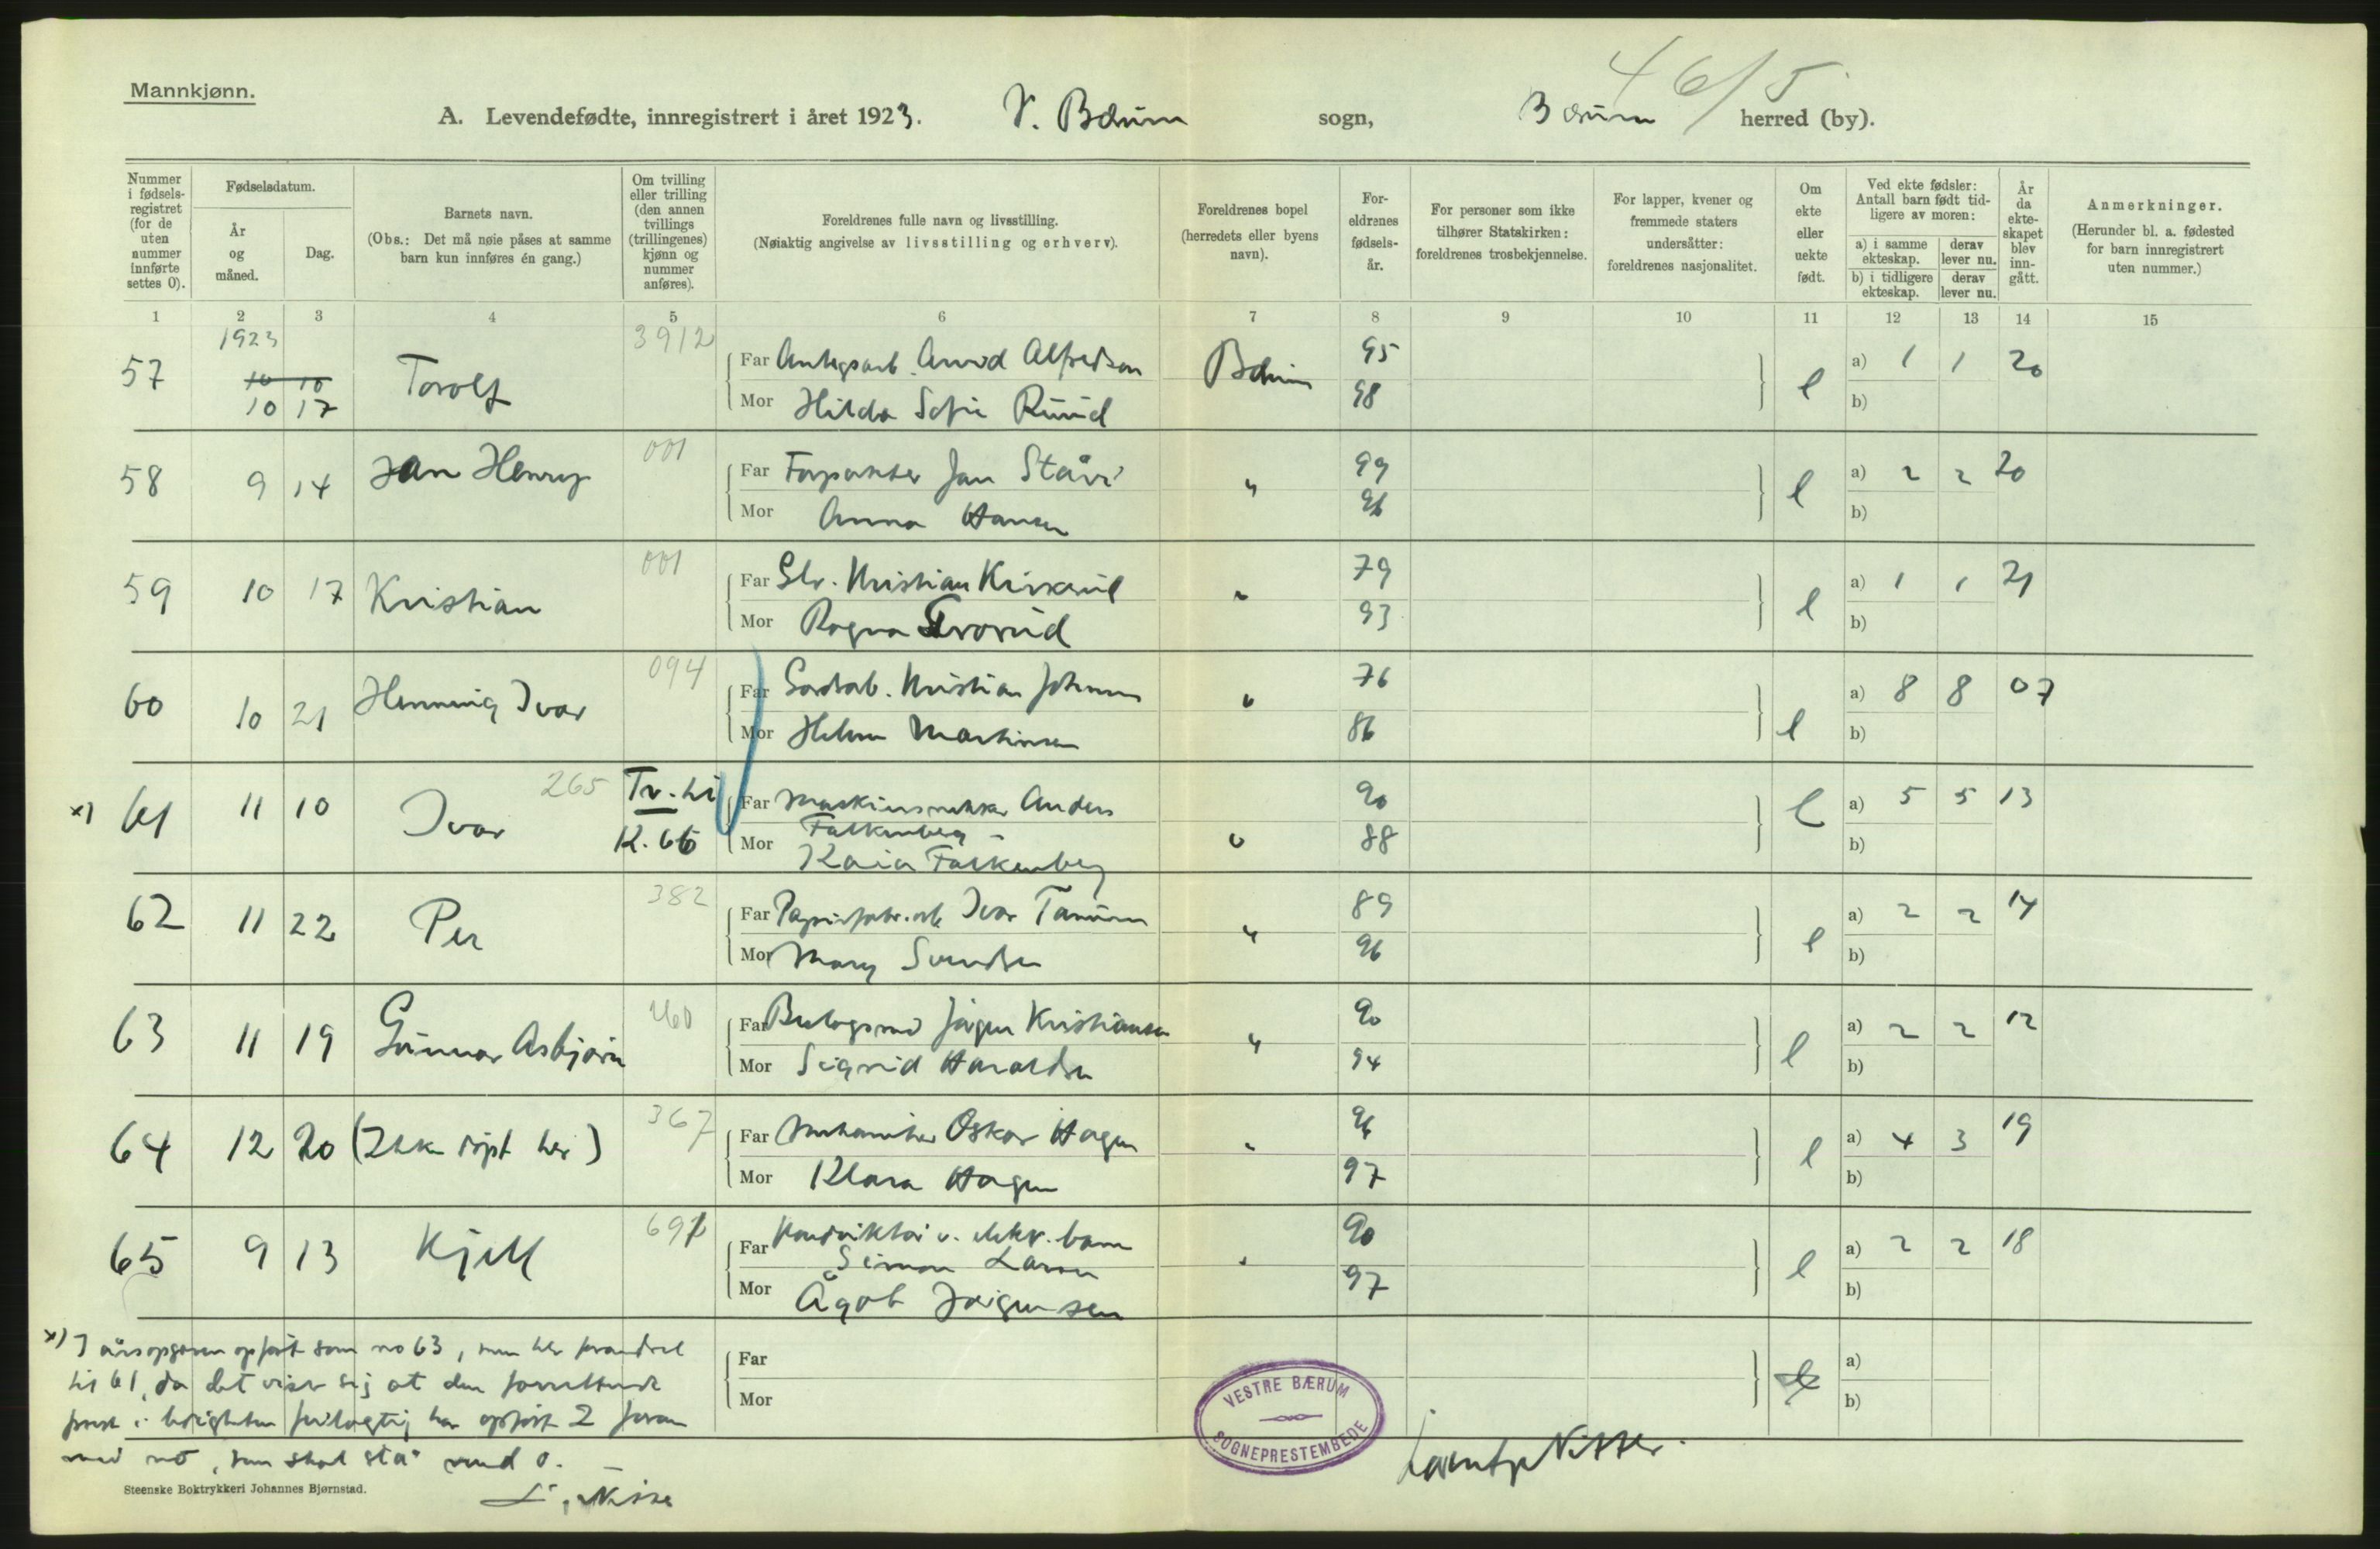 46/5
Mannkjønn.
A. Levendefødte, innregistrert i året 1923. V. Bærum sogn, Bærum herred (by).
Nummer i fødsels- registret (for de uten nummer innførte settes 0).
Fødselsdatum.
År og måned.
Dag.
Barnets navn.
(Obs.: Det må nøie påses at samme barn kun innføres én gang.)
Om tvilling eller trilling (den annen tvillings (trillingenes) kjønn og nummer anføres).
Foreldrenes fulle navn og livsstilling.
(Nøiaktig angivelse av livsstilling og erhverv).
Foreldrenes bopel (herredets eller byens navn).
For- eldrenes fødsels- år.
For personer som ikke tilhører Statskirken: foreldrenes trosbekjennelse.
For lapper, kvener og fremmede staters undersåtter: foreldrenes nasjonalitet.
Om ekte eller uekte født.
Ved ekte fødsler: Antall barn født tid- ligere av moren:
a) i samme ekteskap. derav lever nu.
b) i tidligere ekteskap. derav lever nu.
År da ekte- skapet blev inn- gått.
Anmerkninger.
(Herunder bl. a. fødested for barn innregistrert uten nummer.)
1 2 3 4 5 6 7 8 9 10 11 12 13 14 15
1923 3912
57 10 10 10 17 Torolf Far Anlegsarb. Arvid Alfredsen Bærum 95 e a) 1 1 20
Mor Hilda Sofie Ruud 98 b)
001
58 9 14 Jan Henry Far Jan 99 e a) 2 2 20
Mor Anna Hansen 96 b)
001
59 10 17 Kristian Far Kristian 79 e a) 1 1 21
Mor Ragna 93 b)
094
60 10 21 Henning Ivar Far Kristian Johansen 76 e a) 8 8 07
Mor Martinsen 86 b)
265
x) 61 11 10 Ivar Tv. til K. 66 Far Anders Falkenberg 90 e a) 5 5 13
Mor Kaia Falkenberg 88 b)
382
62 11 22 Per Far Papirfabr.arb. Ivar Tanum " 89 e a) 2 2 14
Mor Mary Svendsen 96 b)
260
63 11 19 Gunnar Asbjørn Far Jørgen Kristiansen " 90 e a) 2 2 12
Mor Sigrid Haraldsen 94 b)
367
64 12 20 (Ikke døpt her) Far Mekaniker Oskar Hagen 96 e a) 4 3 19
Mor Klara Hagen 97 b)
691
65 9 13 Kjell Far Konduktør v. elektr. bane Simon Larsen 90 e a) 2 2 18
Mor Ågot Jørgensen 97 b)
Far e a)
Mor b)
x) I årsopgaven opført som no 63, men her forandret
til 61, da det viser sig at den forrettende
prest i har opført 2 foran
med no, som skal stå med 0.
L. Nisse
VESTRE BÆRUM
SOGNEPRESTEMBEDE
Steenske Boktrykkeri Johannes Bjørnstad.